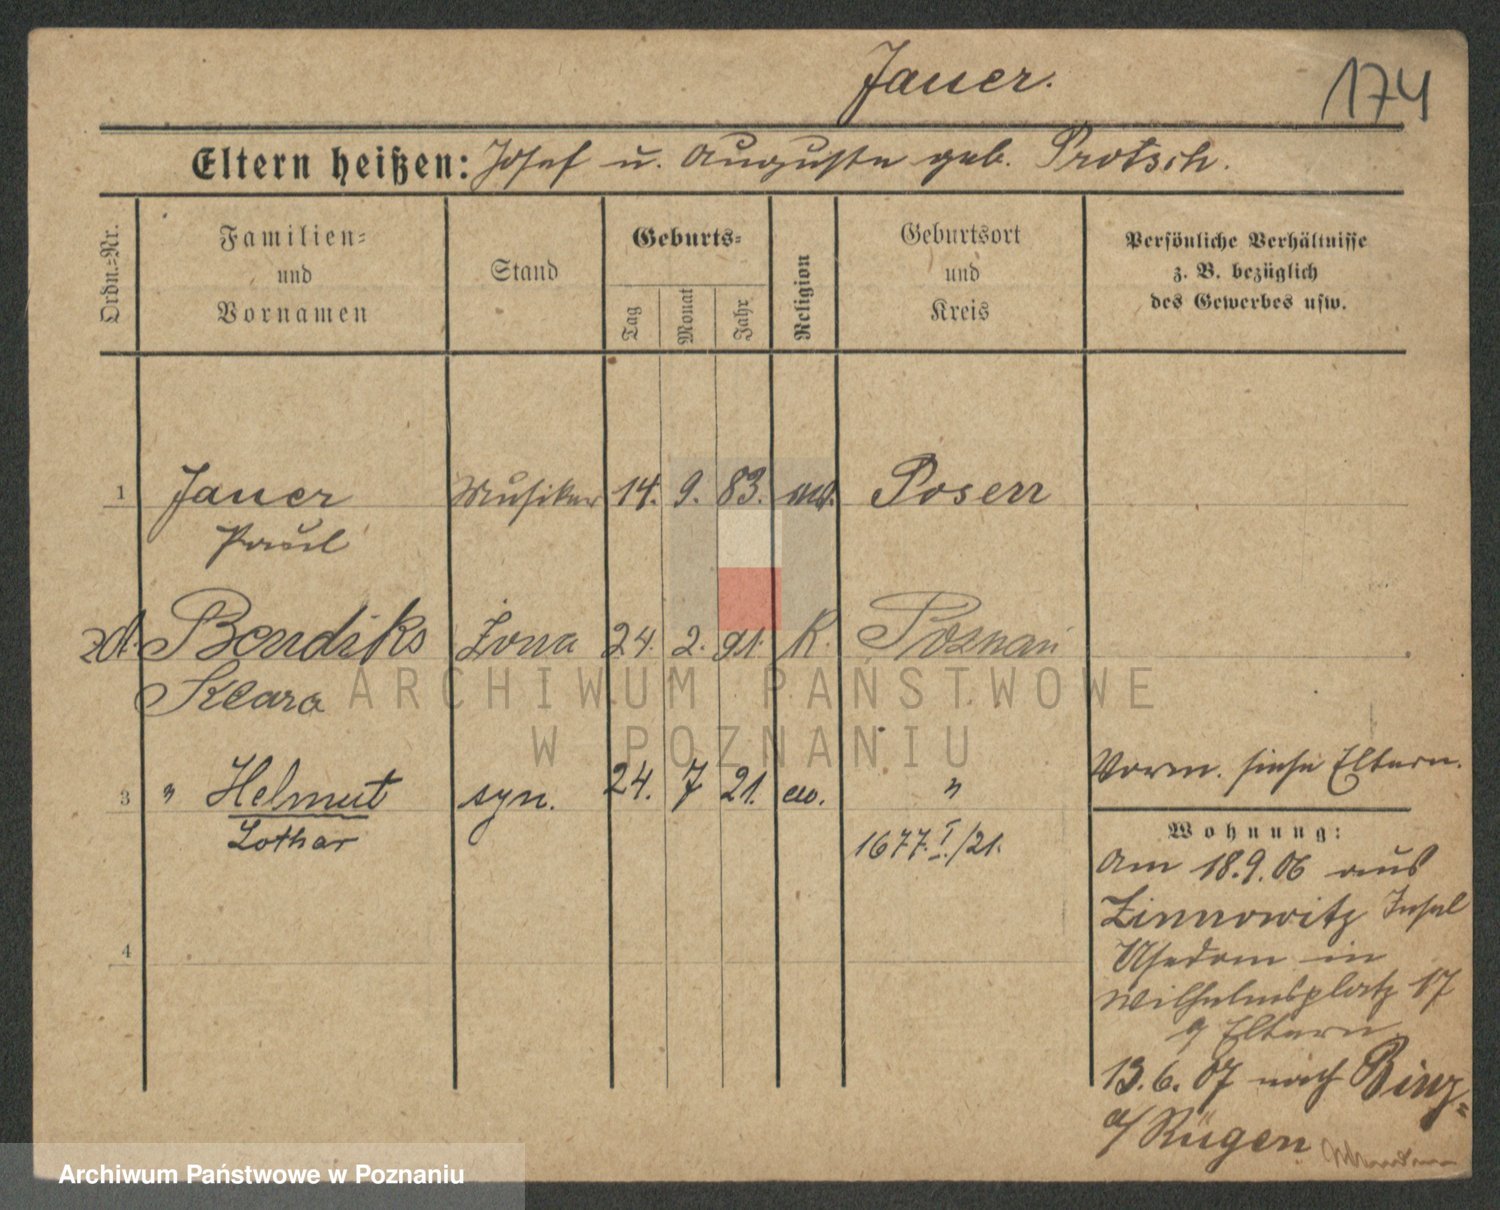 Jauer.
174
Eltern heißen: Josef u. Auguste geb. Protsch.
Ordn.-Nr.
Familien-
und
Vornamen
Stand
Geburts-
Tag
Monat
Jahr
Religion
Geburtsort
und
Kreis
Persönliche Verhältnisse
z. B. bezüglich
des Gewerbes usw.
1 Jauer Musiker 14. 9. 83. Posen
Paul
Bendiks żona 24. 2. 91. K. Poznań
Klara
3 " Helmut syn. 24. 7 21. ew. "
Lothar
1677.I./21.
4
Vorm. siehe Eltern.
Wohnung:
Am 18.9.06 aus
Zinnowitz Insel
Usedom in
Wilhelmsplatz 17
Eltern
13.6.07 nach Binz-
a/Rügen
ARCHIWUM PAŃSTWOWE
W POZNANIU
Archiwum Państwowe w Poznaniu